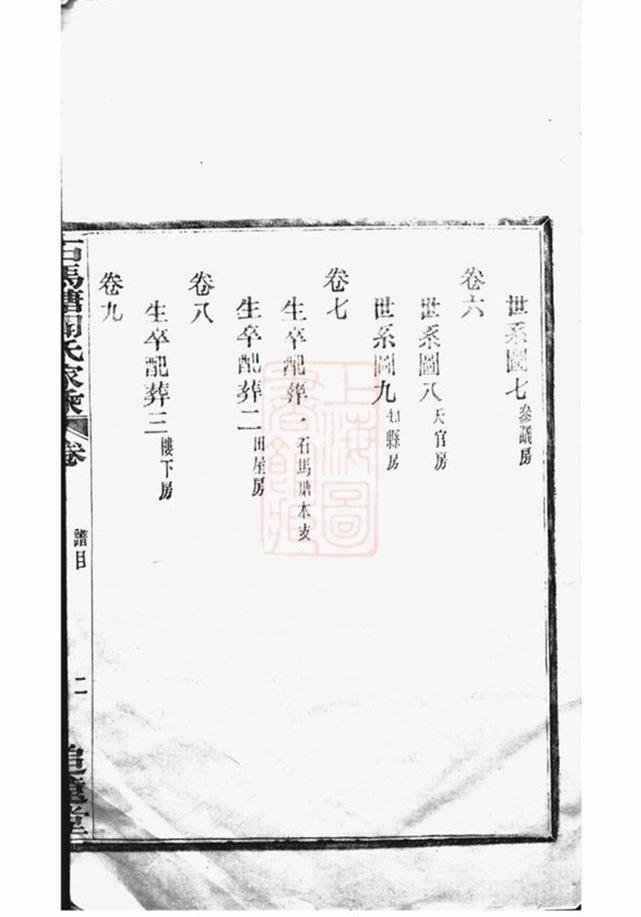 世系圖七 參議房
卷六
世系圖八 天官房
世系圖九 知縣房
卷七
生卒配葬一 石馬塘本支
生卒配葬二 田屋房
卷八
生卒配葬三 樓下房
卷九
石馬塘周氏家乘 卷 譜目 二 追遠堂
上海圖書館藏